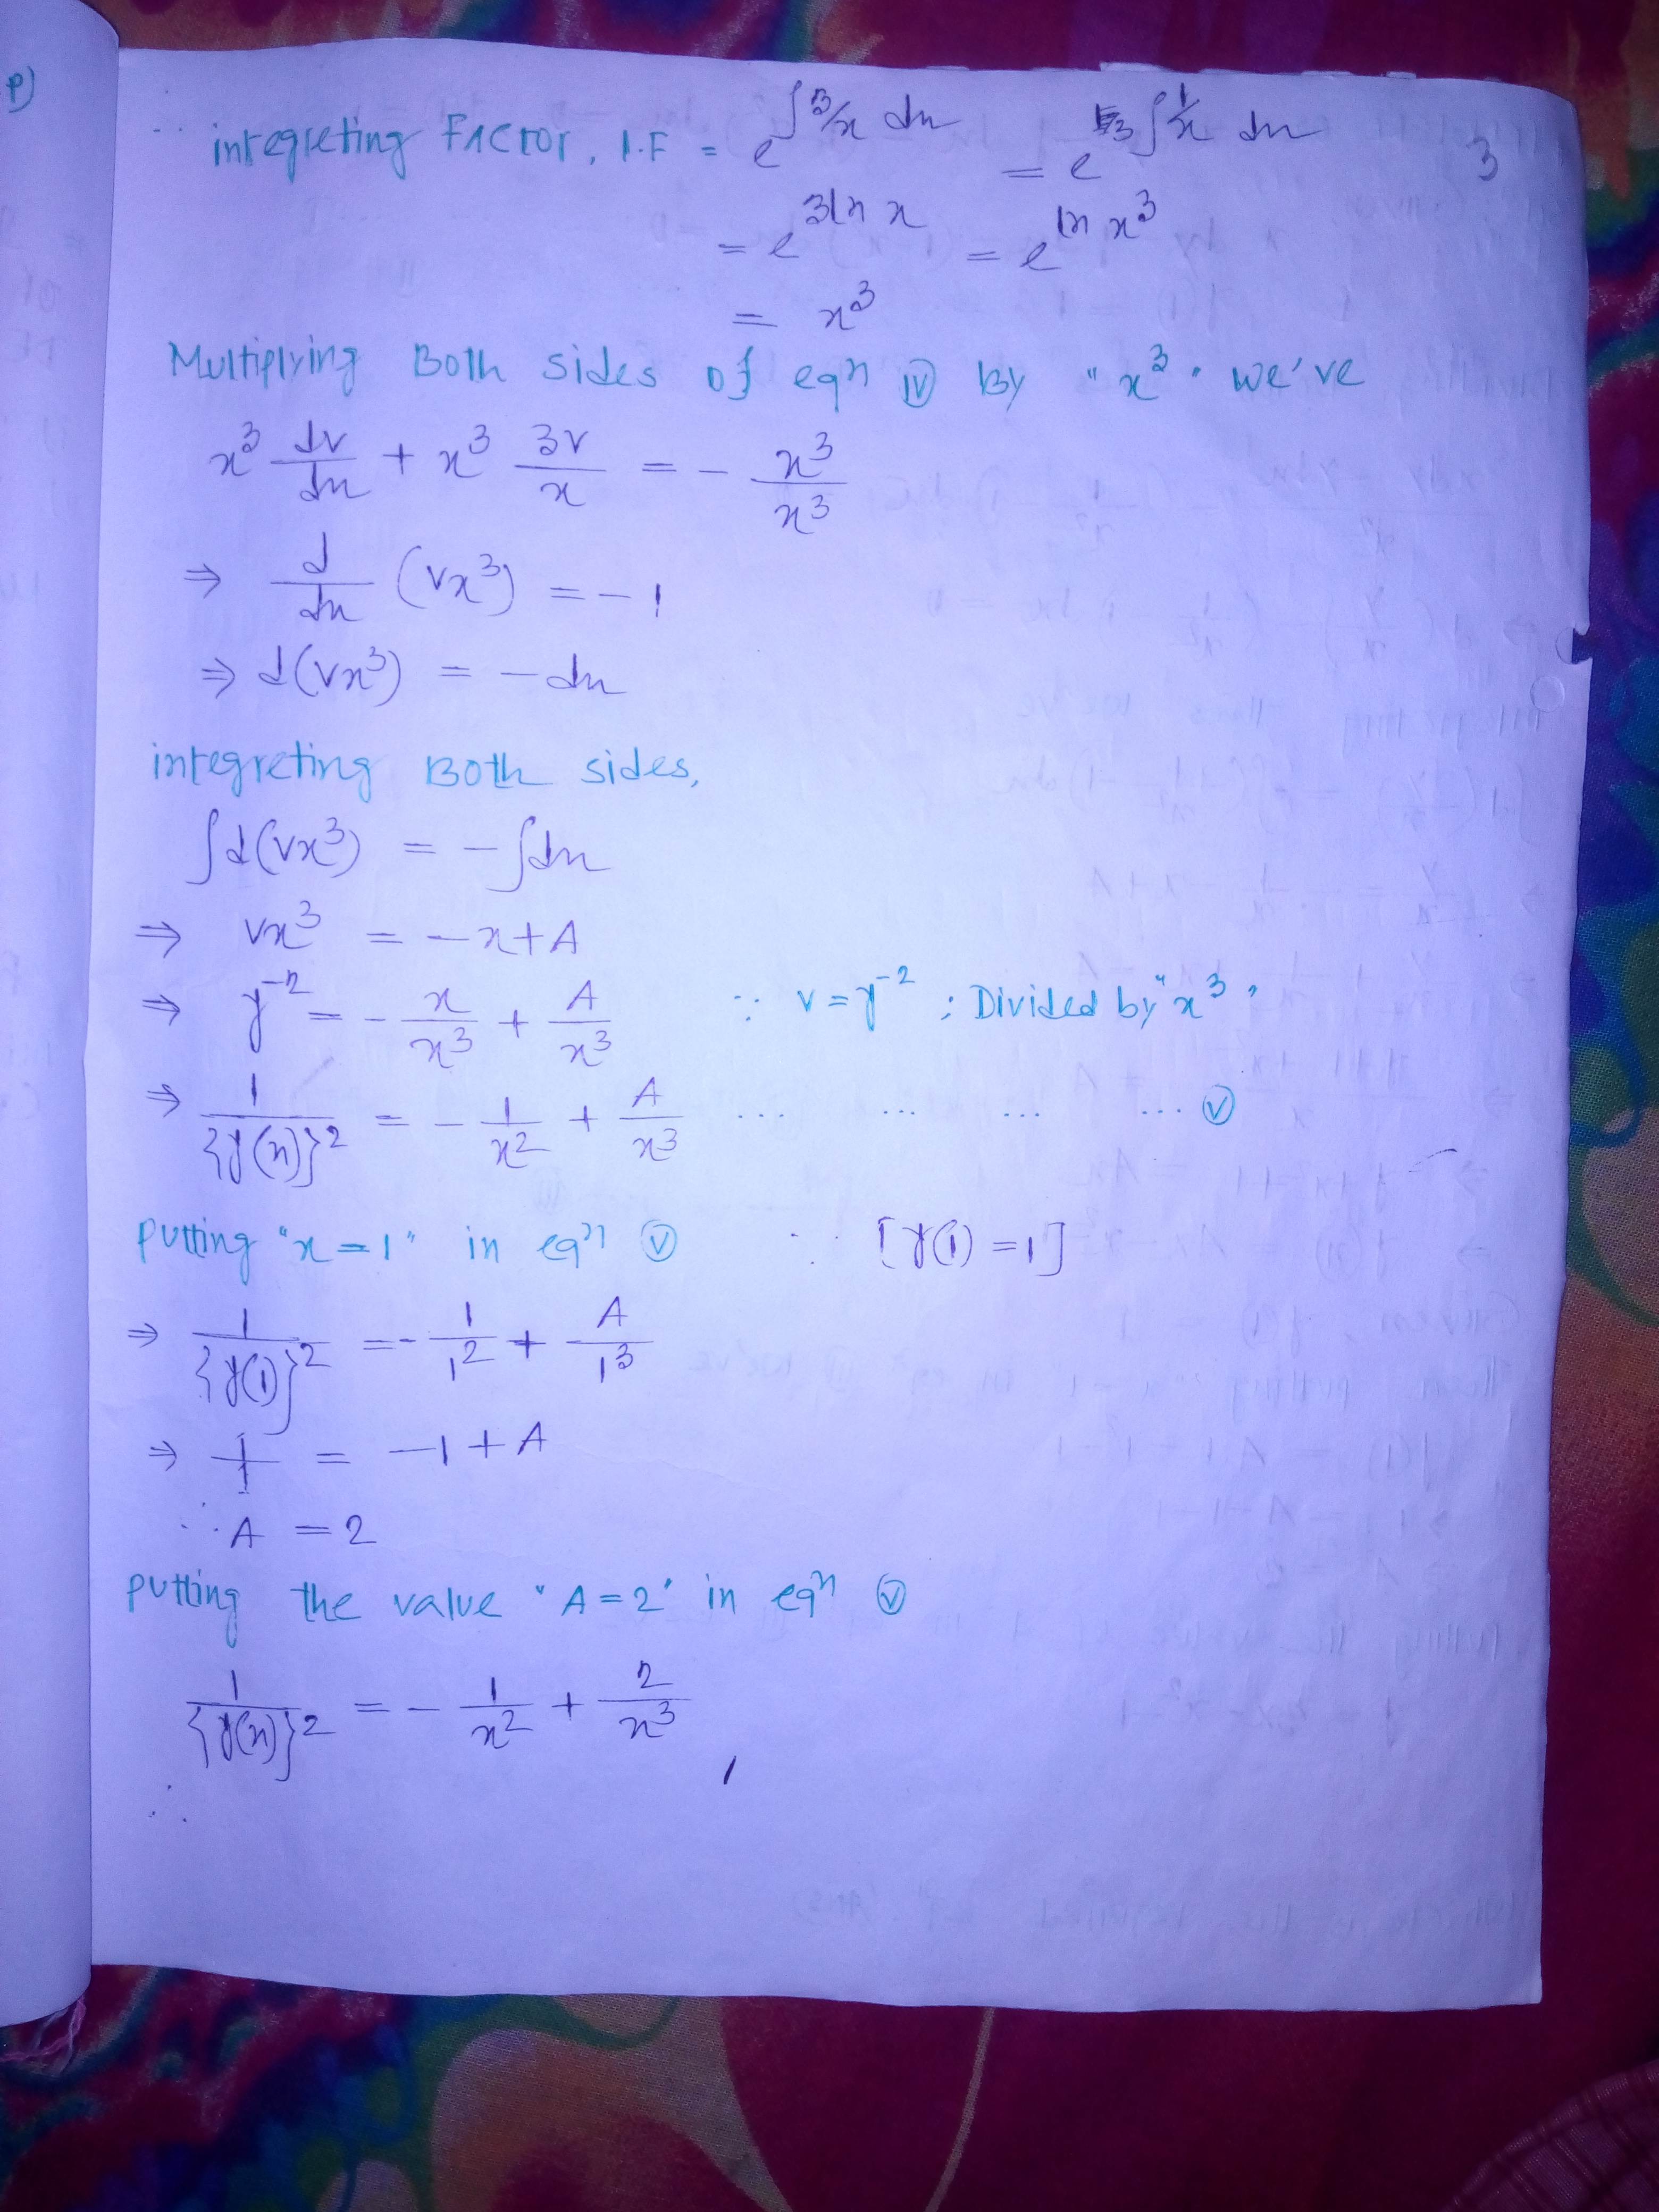 P)
3
∴ integreting Factor, I.F = e^{∫3/x dx} = e^{3∫1/x dx}
= e^{3ln x} = e^{ln x^3}
= x^3
Multiplying Both sides of eqn (iv) by "x^3" we've
x^3 dv/dx + x^3 3v/x = - x^3/x^3
⇒ d/dx (vx^3) = -1
⇒ d(vx^3) = -dx
integreting Both sides,
∫d(vx^3) = -∫dx
⇒ vx^3 = -x+A
⇒ y^{-2} = - x/x^3 + A/x^3 ∵ v = y^{-2} ; Divided by "x^3"
⇒ 1/{y(x)}^2 = - 1/x^2 + A/x^3 ... ... ... ... (v)
putting "x=1" in eqn (v) ∵ [y(1) = 1]
⇒ 1/{y(1)}^2 = - 1/1^2 + A/1^3
⇒ 1/1 = -1 + A
∴ A = 2
putting the value "A=2" in eqn (v)
1/{y(x)}^2 = - 1/x^2 + 2/x^3
∴